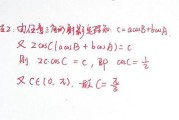 法2：由任意三角的射影定理知 c=acosB+bcosA.
又 2cosC(acosB+bcosA)=c
则 2c·cosC=c，即 cosC=1/2
又 C∈(0,π)，故 C=π/3